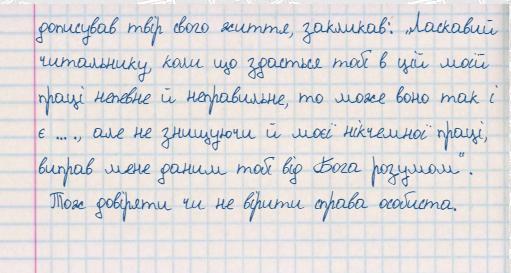 дописував твір свого життя, закликав: „Ласкавий
читальнику, коли що здасться тобі в цій моїй
праці непевне й неправильне, то може воно так і
є ..., але не знищуючи й моєї нікчемної праці,
виправ мене даним тобі від Бога розумом".
Тож довіряти чи не вірити справа особиста.